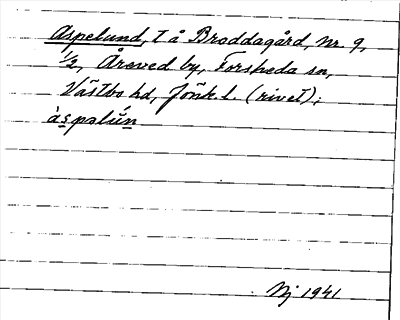 Aspelund, t å Broddagård, nr. 9,
1/2, Åreved by, Forsheda sn,
Västbo hd, Jönk. l. (rivet);
àspəlún
Nj 1941